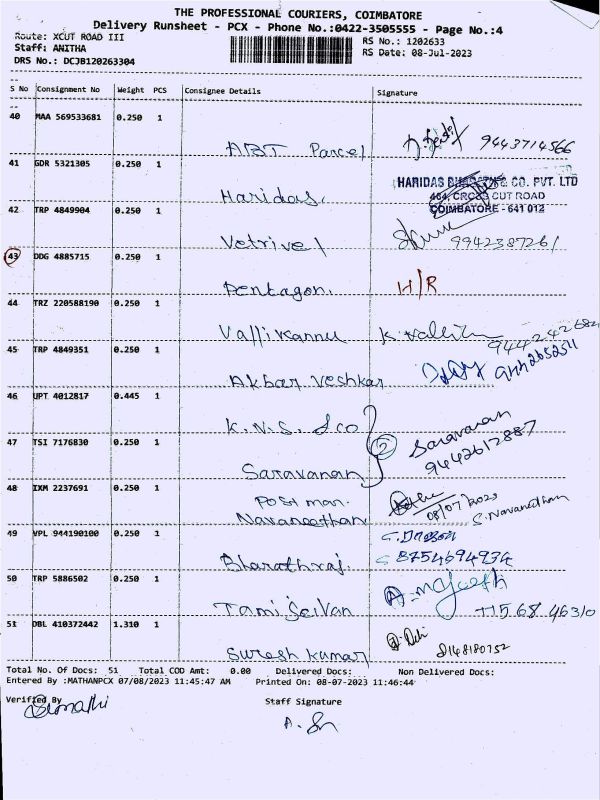 THE PROFESSIONAL COURIERS, COIMBATORE
Delivery Runsheet - PCX - Phone No.:0422-3505555 - Page No.:4
Route: XCUT ROAD III
RS No.: 1202633
Staff: ANITHA
RS Date: 08-Jul-2023
DRS No.: DCJB120263304
S No Consignment No Weight PCS Consignee Details Signature
40 MAA 569533681 0.250 1 ABT Parcel 9443714566
41 GDR 5321305 0.250 1 Haridas.
HARIDAS CO. PVT. LTD
464, CROSS CUT ROAD
COIMBATORE - 641 012
42 TRP 4849904 0.250 1 Vetrivel 9942387261
43 DDG 4885715 0.250 1 Pentagon. H/R
44 TRZ 220588190 0.250 1 Vallikannu
45 TRP 4849351 0.250 1 Akbar Veshkar
46 UPT 4012817 0.445 1 K.N.S. &co
2 Saravanan
9442612887
47 TSI 7176830 0.250 1 Saravanan
48 IXM 2237691 0.250 1 Post man.
Navaneethan 08/07/2023 S. Navaneethan
49 VPL 944190100 0.250 1 Bharathraj. 8754694934
50 TRP 5886502 0.250 1 Tamilselvan
51 DBL 410372442 1.310 1 Suresh kumar 8148180752
Total No. Of Docs: 51 Total COD Amt: 0.00 Delivered Docs: Non Delivered Docs:
Entered By :MATHANPCX 07/08/2023 11:45:47 AM Printed On: 08-07-2023 11:46:44
Verified By Staff Signature